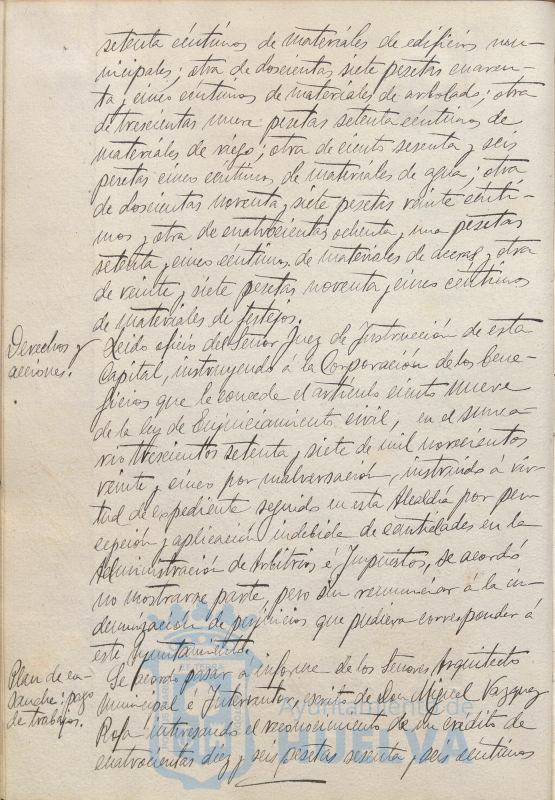 setenta céntimos de materiales de edificios mu-
nicipales; otra de doscientas siete pesetas cuaren-
ta y cinco céntimos de materiales de arbolado; otra
de trescientas nueve pesetas setenta céntimos de
materiales de riego; otra de ciento sesenta y seis
pesetas cinco céntimos de materiales de agua; otra
de doscientas noventa y siete pesetas veinte cénti-
mos y otra de cuatrocientas ochenta y una pesetas
setenta y cinco céntimos de materiales de y otra
de veinte y siete pesetas noventa y cinco céntimos
de materiales de festejos.
Derechos y
acciones.
Leido oficio del Señor Juez de Instrucción de esta
Capital, instruyendo á la Corporación de los bene-
ficios que le concede el artículo ciento nueve
de la ley de Enjuiciamiento civil, en el suma-
rio trescientos setenta y siete de mil novecientos
veinte y cinco por malversación, instruido á vir-
tud de expediente seguido en esta Alcaldía por per-
cepción y aplicación indebida de cantidades en la
Administración de Arbitrios é Impuestos, se acordó
no mostrarse parte, pero sin renunciar á la in-
demnización de perjuicios que pudiera corresponder á
este Ayuntamiento.
Plan de en-
sanche: pago
de trabajos.
Se acordó pasar a informe de los Señores Arquitecto
Municipal é Interventor, escrito de Don Miguel Vazquez
interesando el reconocimiento de un crédito de
cuatrocientas diez y seis pesetas sesenta y seis céntimos
Ayuntamiento de
HUELVA